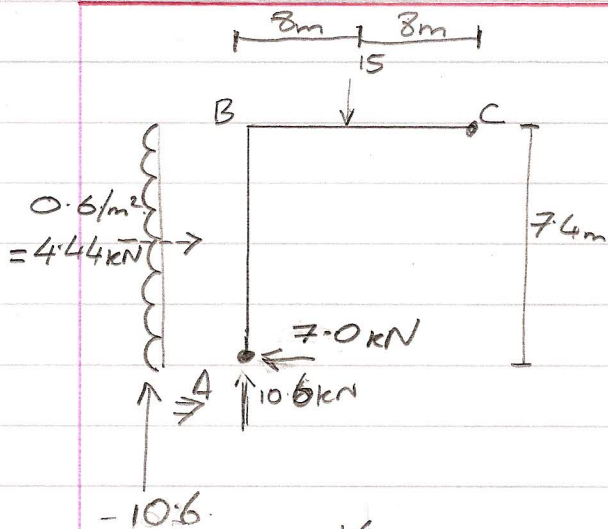 8m 8m
15
B C
0.6/m²
= 4.44kN
7.4m
7.0kN
A 10.6kN
-10.6